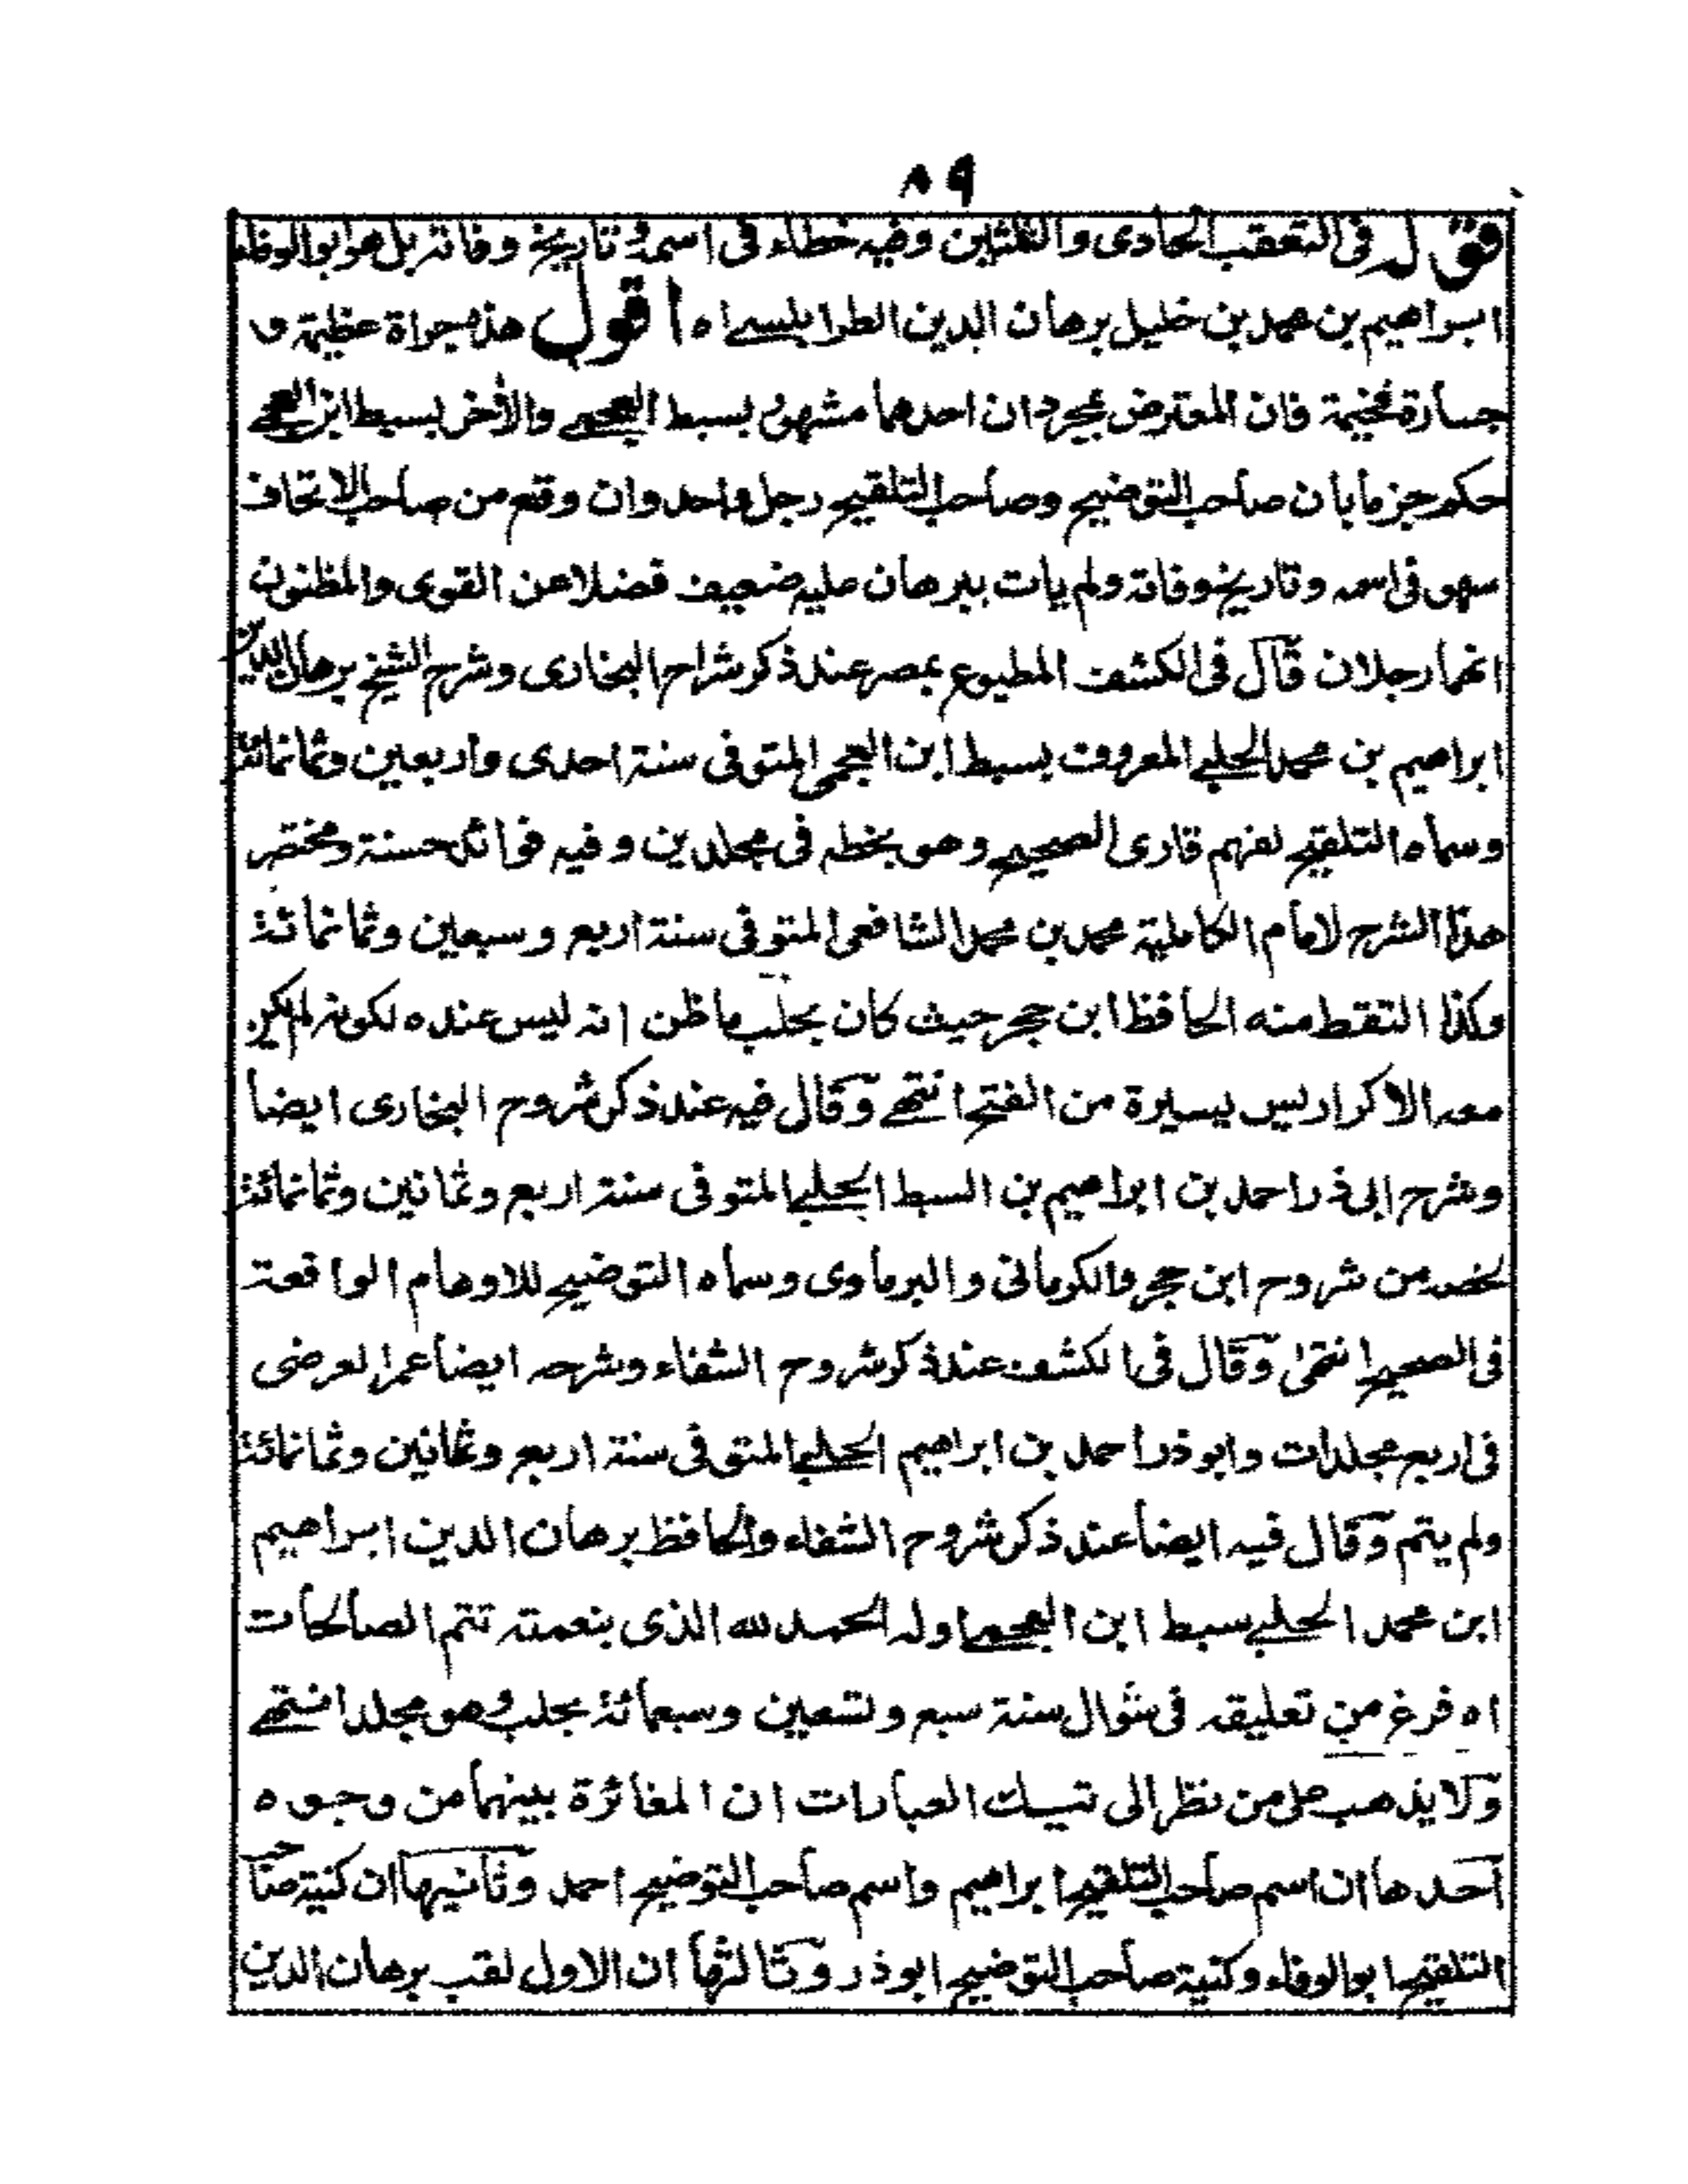 ٨٩
قوله فى التعقب الحادى والثلثين وفيه خطاء فى اسمه وتاريخ وفاته بل هو ابوالوفاء
ابراهيم بن محمد بن خليل برهان الدين الطرابلسے اه اقول هذه جراة عظيمة و
جسارة فخيمة فان المعترض بمجرد ان احدهما مشهور بسبط العجمے والأخر بسبط ابن العجمے
حكم جزما بان صاحب التوضيح وصاحب التلقيح رجل واحد وان وقع من صاحب الاتحاف
سهو فى اسمه وتاريخ وفاته ولم يات ببرهان عليه ضعيف فضلا عن القوى والمظنون
انهما رجلان قال فى الكشف المطبوع بمصر عند ذكر شراح البخارى وشرح الشيخ برهان الدين
ابراهيم بن محمد الحلبے المعروف بسبط ابن العجمى المتوفى سنة احدى واربعين وثمانمائة
وسماه التلقيح لفهم قارى الصحيح وهو بخطه فى مجلدين وفيه فوائد حسنة ومختصر
هذا الشرح لامام الكاملية محمد بن محمد الشافعى المتوفى سنة اربع وسبعين وثمانمائة
وكذا التقط منه الحافظ ابن حجر حيث كان بحلب ما ظن انه ليس عنده لكونه لم يكن
معه الا كراريس يسيرة من الفتح انتهے وقال فيه عند ذكر شروح البخارى ايضا
وشرح ابى ذر احمد بن ابراهيم بن السبط الحلبے المتوفى سنة اربع وثمانين وثمانمائة
لخصه من شروح ابن حجر والكرمانى والبرماوى وسماه التوضيح للاوهام الواقعة
فى الصحيح انتهى وقال فى الكشف عند ذكر شروح الشفاء وشرحه ايضا عمر العرضى
فى اربع مجلدات وابو ذر احمد بن ابراهيم الحلبے المتوفى سنة اربع وثمانين وثمانمائة
ولم يتم وقال فيه ايضا عند ذكر شروح الشفاء والحافظ برهان الدين ابراهيم
ابن محمد الحلبے سبط ابن العجمے اوله الحمد لله الذى بنعمته تتم الصالحات
اه فرغ من تعليقه فى شوال سنة سبع وتسعين وسبعمائة بحلب وهو مجلد انتهے
ولا يذهب على من نظر الى تيسك العبارات ان المغائرة بينهما من وجوه
احدها ان اسم صاحب التلقيح ابراهيم واسم صاحب التوضيح احمد وثانيها ان كنية صاحب
التلقيح ابوالوفاء وكنية صاحب التوضيح ابوذر وثالثها ان الاول لقب برهان الدين